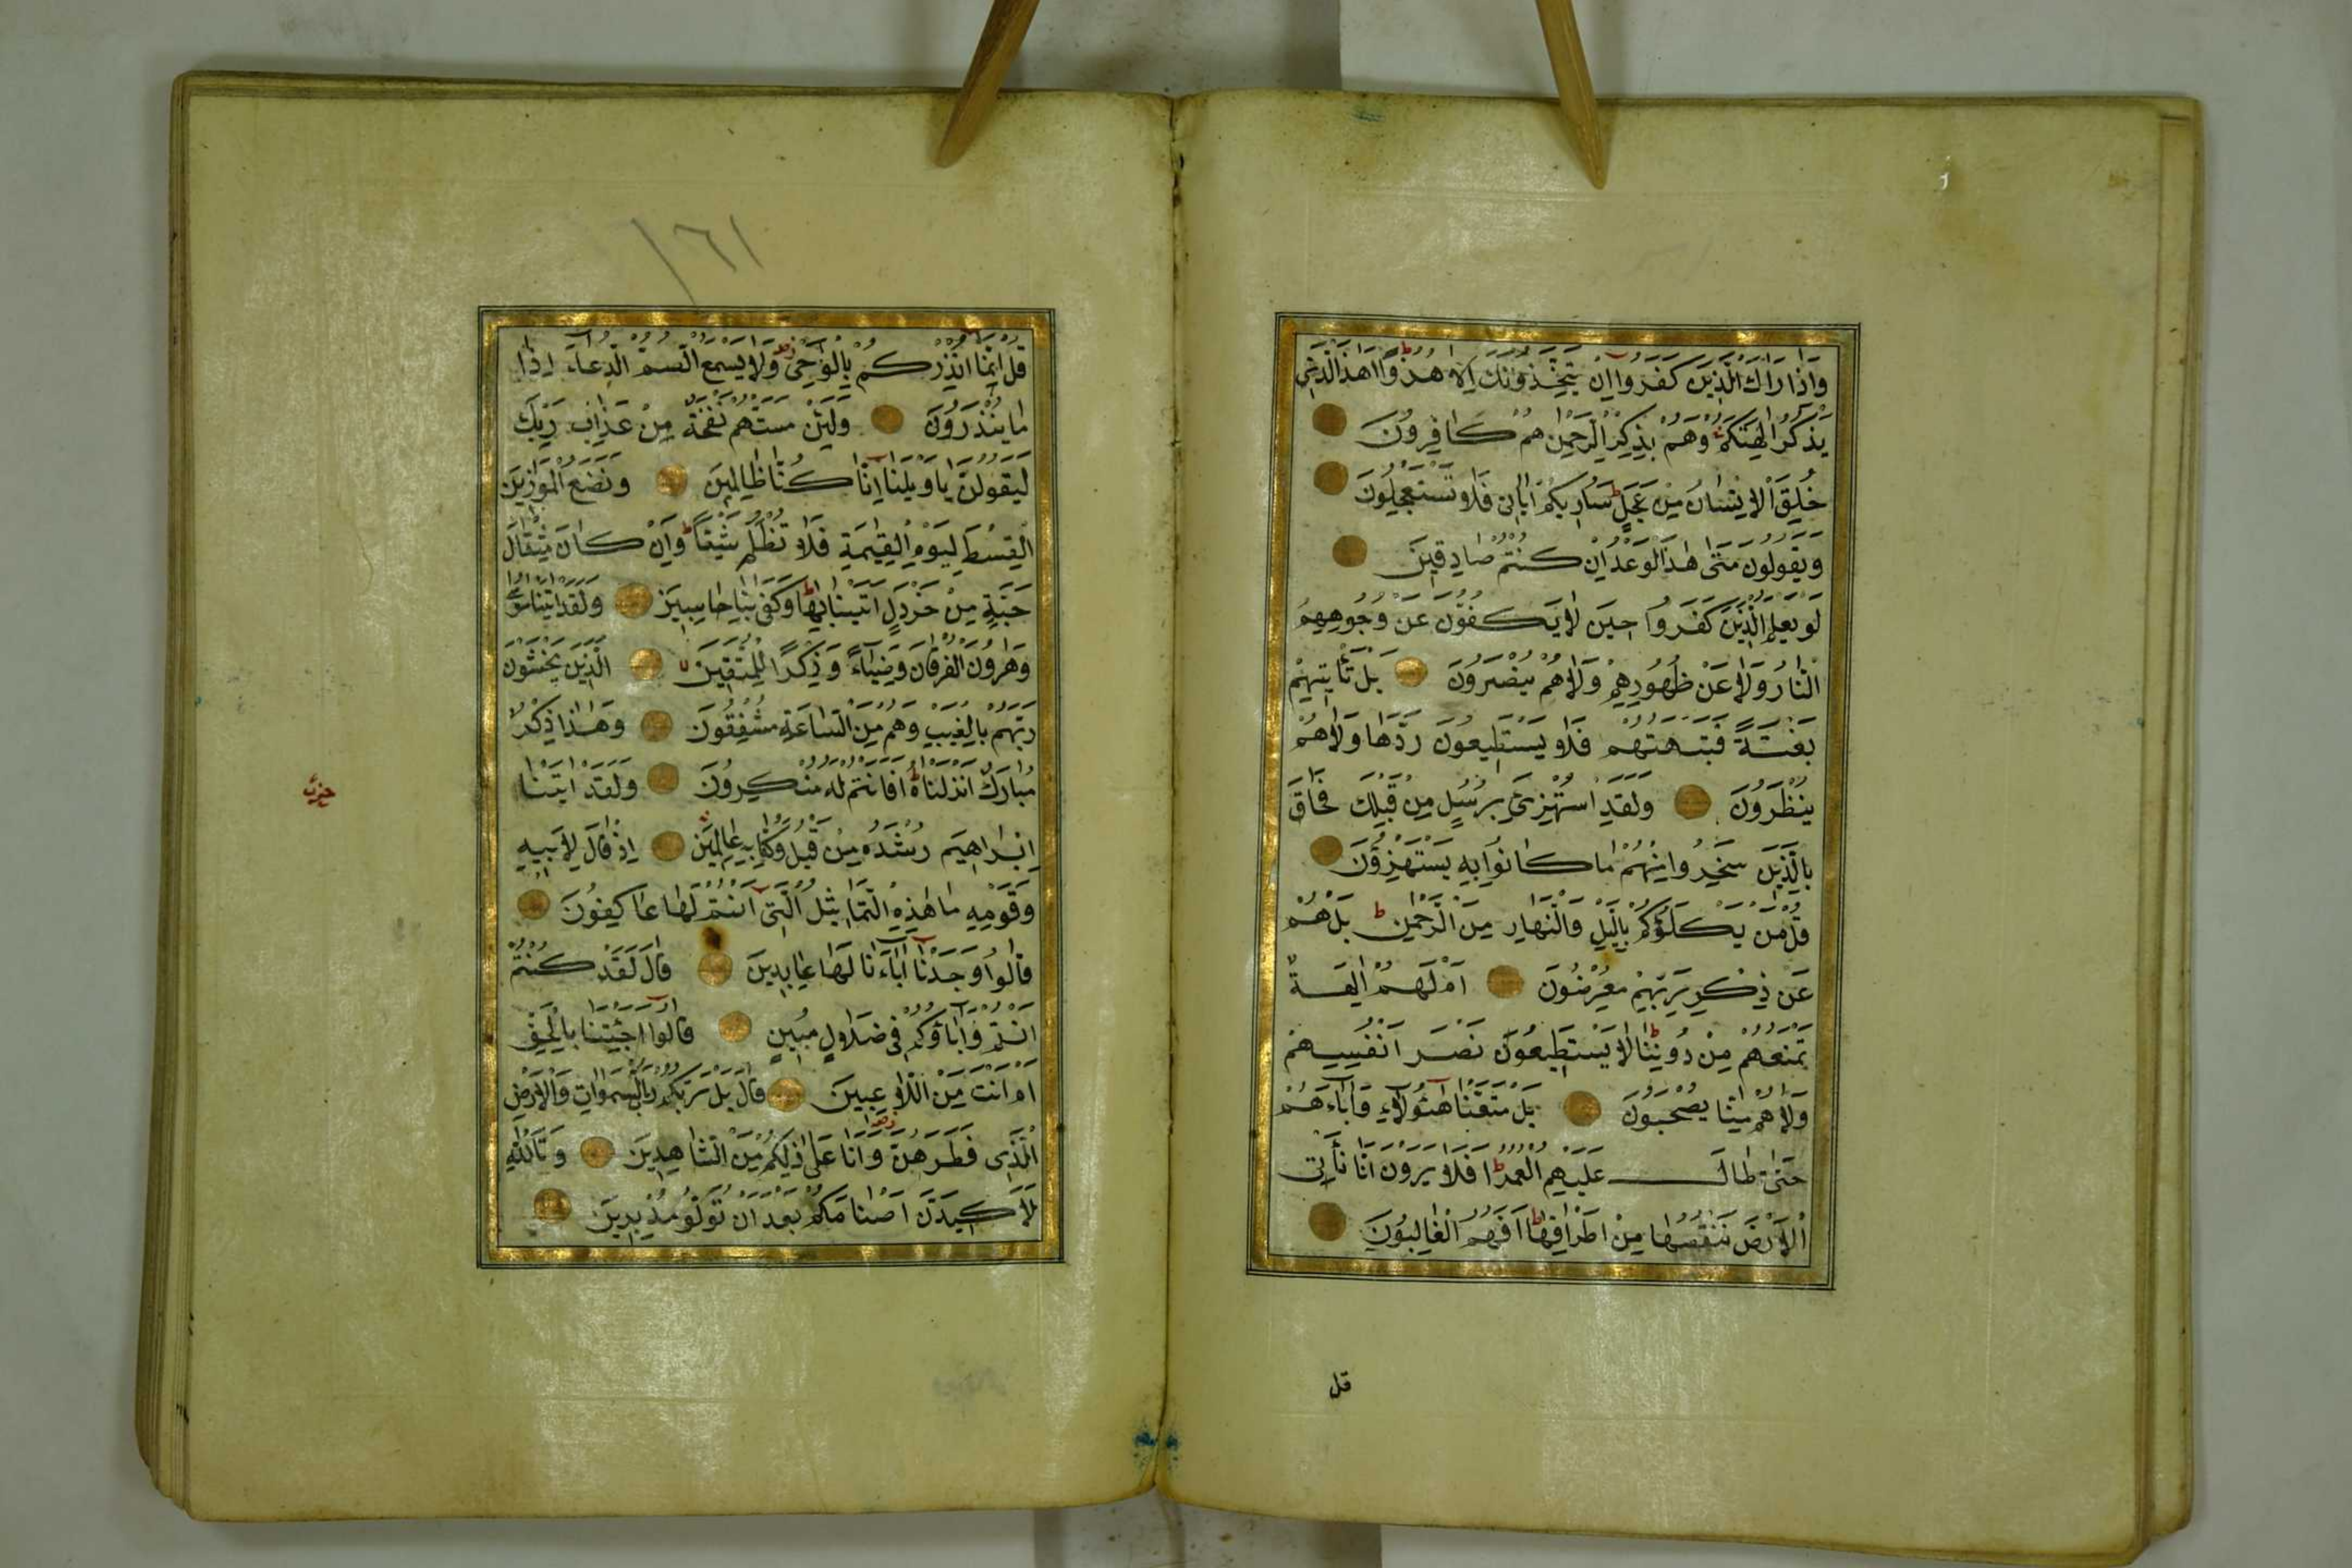 وَاِذَا رَاٰكَ الَّذِينَ كَفَرُوا اِنْ يَتَّخِذُونَكَ اِلَّا هُزُوًا اَهٰذَا الَّذِي
يَذْكُرُ اٰلِهَتَكُمْ وَهُمْ بِذِكْرِ الرَّحْمٰنِ هُمْ كَافِرُونَ
خُلِقَ الْاِنْسَانُ مِنْ عَجَلٍ سَاُرِيكُمْ اٰيَاتِى فَلَا تَسْتَعْجِلُونَ
وَيَقُولُونَ مَتٰى هٰذَا الْوَعْدُ اِنْ كُنْتُمْ صَادِقِينَ
لَوْ يَعْلَمُ الَّذِينَ كَفَرُوا حِينَ لَا يَكُفُّونَ عَنْ وُجُوهِهِمُ
النَّارَ وَلَا عَنْ ظُهُورِهِمْ وَلَا هُمْ يُنْصَرُونَ بَلْ تَأْتِيهِمْ
بَغْتَةً فَتَبْهَتُهُمْ فَلَا يَسْتَطِيعُونَ رَدَّهَا وَلَا هُمْ
يُنْظَرُونَ وَلَقَدِ اسْتُهْزِئَ بِرُسُلٍ مِنْ قَبْلِكَ فَحَاقَ
بِالَّذِينَ سَخِرُوا مِنْهُمْ مَا كَانُوا بِهِ يَسْتَهْزِؤُنَ
قُلْ مَنْ يَكْلَؤُكُمْ بِالَّيْلِ وَالنَّهَارِ مِنَ الرَّحْمٰنِ بَلْ هُمْ
عَنْ ذِكْرِ رَبِّهِمْ مُعْرِضُونَ اَمْ لَهُمْ اٰلِهَةٌ
تَمْنَعُهُمْ مِنْ دُونِنَا لَا يَسْتَطِيعُونَ نَصْرَ اَنْفُسِهِمْ
وَلَا هُمْ مِنَّا يُصْحَبُونَ بَلْ مَتَّعْنَا هٰٓؤُلَاءِ وَاٰبَاءَهُمْ
حَتّٰى طَالَ عَلَيْهِمُ الْعُمُرُ اَفَلَا يَرَوْنَ اَنَّا نَأْتِى
الْاَرْضَ نَنْقُصُهَا مِنْ اَطْرَافِهَا اَفَهُمُ الْغَالِبُونَ
قل
١٦١
قُلْ اِنَّمَا اُنْذِرُكُمْ بِالْوَحْىِ وَلَا يَسْمَعُ الصُّمُّ الدُّعَاءَ اِذَا
مَا يُنْذَرُونَ وَلَئِنْ مَسَّتْهُمْ نَفْحَةٌ مِنْ عَذَابِ رَبِّكَ
لَيَقُولُنَّ يَا وَيْلَنَا اِنَّا كُنَّا ظَالِمِينَ وَنَضَعُ الْمَوَازِينَ
الْقِسْطَ لِيَوْمِ الْقِيٰمَةِ فَلَا تُظْلَمُ نَفْسٌ شَيْئًا وَاِنْ كَانَ مِثْقَالَ
حَبَّةٍ مِنْ خَرْدَلٍ اَتَيْنَا بِهَا وَكَفٰى بِنَا حَاسِبِينَ وَلَقَدْ اٰتَيْنَا مُوسٰى
وَهٰرُونَ الْفُرْقَانَ وَضِيَاءً وَذِكْرًا لِلْمُتَّقِينَ الَّذِينَ يَخْشَوْنَ
رَبَّهُمْ بِالْغَيْبِ وَهُمْ مِنَ السَّاعَةِ مُشْفِقُونَ وَهٰذَا ذِكْرٌ
مُبَارَكٌ اَنْزَلْنَاهُ اَفَاَنْتُمْ لَهُ مُنْكِرُونَ وَلَقَدْ اٰتَيْنَا
حزب
اِبْرَاهِيمَ رُشْدَهُ مِنْ قَبْلُ وَكُنَّا بِهِ عَالِمِينَ اِذْ قَالَ لِاَبِيهِ
وَقَوْمِهِ مَا هٰذِهِ التَّمَاثِيلُ الَّتِى اَنْتُمْ لَهَا عَاكِفُونَ
قَالُوا وَجَدْنَا اٰبَاءَنَا لَهَا عَابِدِينَ قَالَ لَقَدْ كُنْتُمْ
اَنْتُمْ وَاٰبَاؤُكُمْ فِى ضَلَالٍ مُبِينٍ قَالُوا اَجِئْتَنَا بِالْحَقِّ
اَمْ اَنْتَ مِنَ اللَّاعِبِينَ قَالَ بَلْ رَبُّكُمْ رَبُّ السَّمٰوَاتِ وَالْاَرْضِ
الَّذِى فَطَرَهُنَّ وَاَنَا عَلٰى ذٰلِكُمْ مِنَ الشَّاهِدِينَ وَتَاللّٰهِ
لَاَكِيدَنَّ اَصْنَامَكُمْ بَعْدَ اَنْ تُوَلُّوا مُدْبِرِينَ